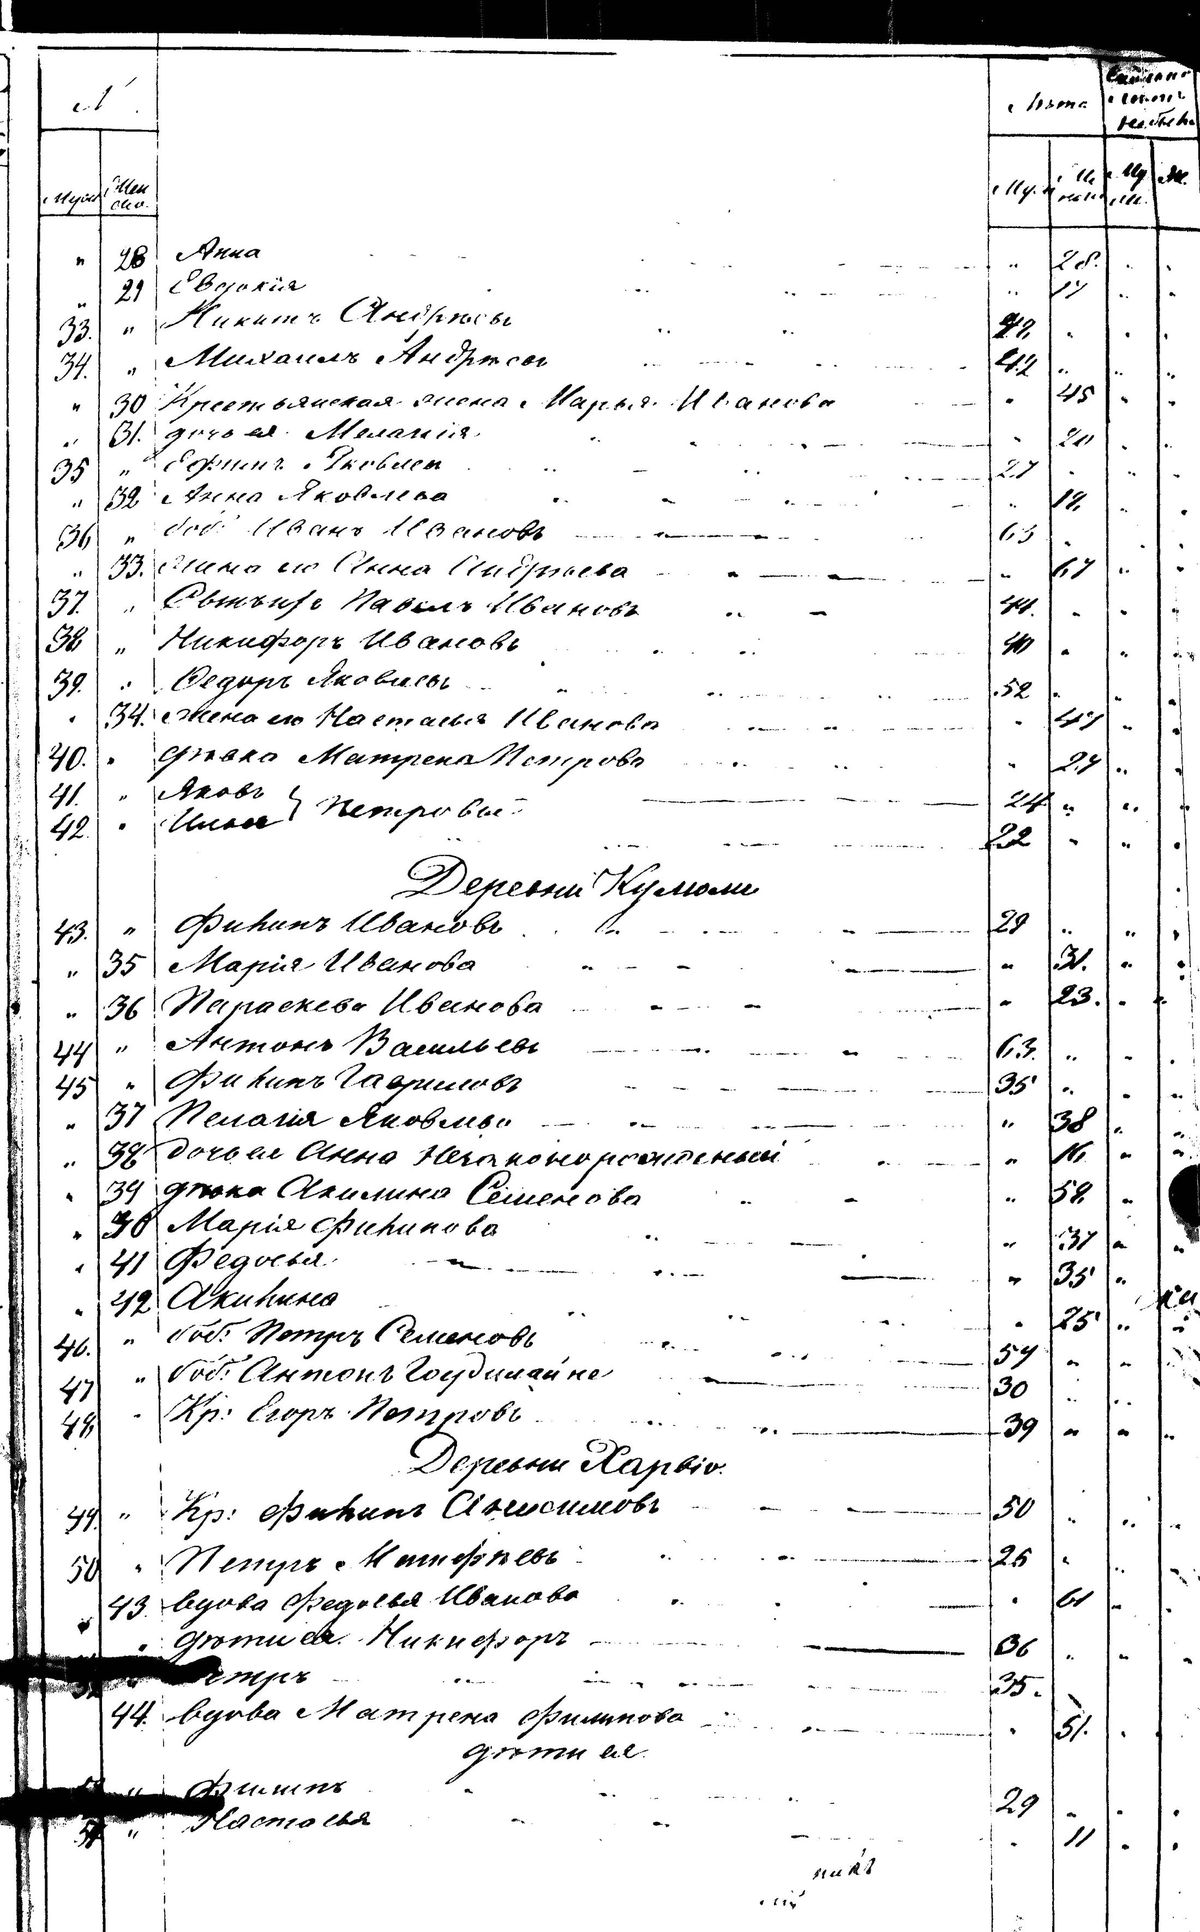 № Лѣта
Муж. Жен ско. Муж Же нск Му ж. Ж.
" 28 Анна " 28.
" 29 Евдокія " 17
33. " Никитъ Андреевъ 42
34. " Михаилъ Андреевъ 42
" 30 Крестьянская жена Марья Иванова " 45
" 31. дочь ея Меланія " 20
35 " Ефимъ Яковлевъ 27
" 32 Анна Яковлева " 18
36 " боб: Иванъ Ивановъ 63
" 33. жена его Анна Андреева " 67
37. " Павелъ Ивановъ 44.
38 " Никифоръ Ивановъ 40
39. " Ѳедоръ Яковлевъ 52
" 34. жена его Настасья Иванова " 47
40. " дѣвка Матрена Петрова " 27
41. " Яковъ } Петровы 24
42. " Илья 22
Деревни Кумоли
43. " Филипъ Ивановъ 29
" 35 Марія Иванова " 31.
" 36 Параскева Иванова " 23.
44 " Антонъ Васильевъ 63.
45 " Филипъ Гавриловъ 35
" 37 Пелагія Яковлева " 38
" 38 дочь ея Анна незаконорожденный " 16
" 39 дѣвка Акилина Семенова " 52
" 40 Марія Филипова " 37
" 41 Федосья " 35
" 42 Акилина " 25
46. " боб: Петръ Семеновъ 54
47 " боб: Антонъ 30
48 " Кр: Егоръ Петровъ 39
Деревни Харвіо.
49. " Кр: Филипъ Анисимовъ 50
50 " Петръ Матфѣевъ 26
" 43. вдова Федосья Иванова " 61
" дѣти ея Никифоръ 36
Петръ 35.
44. вдова Матрена Филипова " 51.
дѣти ея
" Филипъ 29
" Настасья " 11